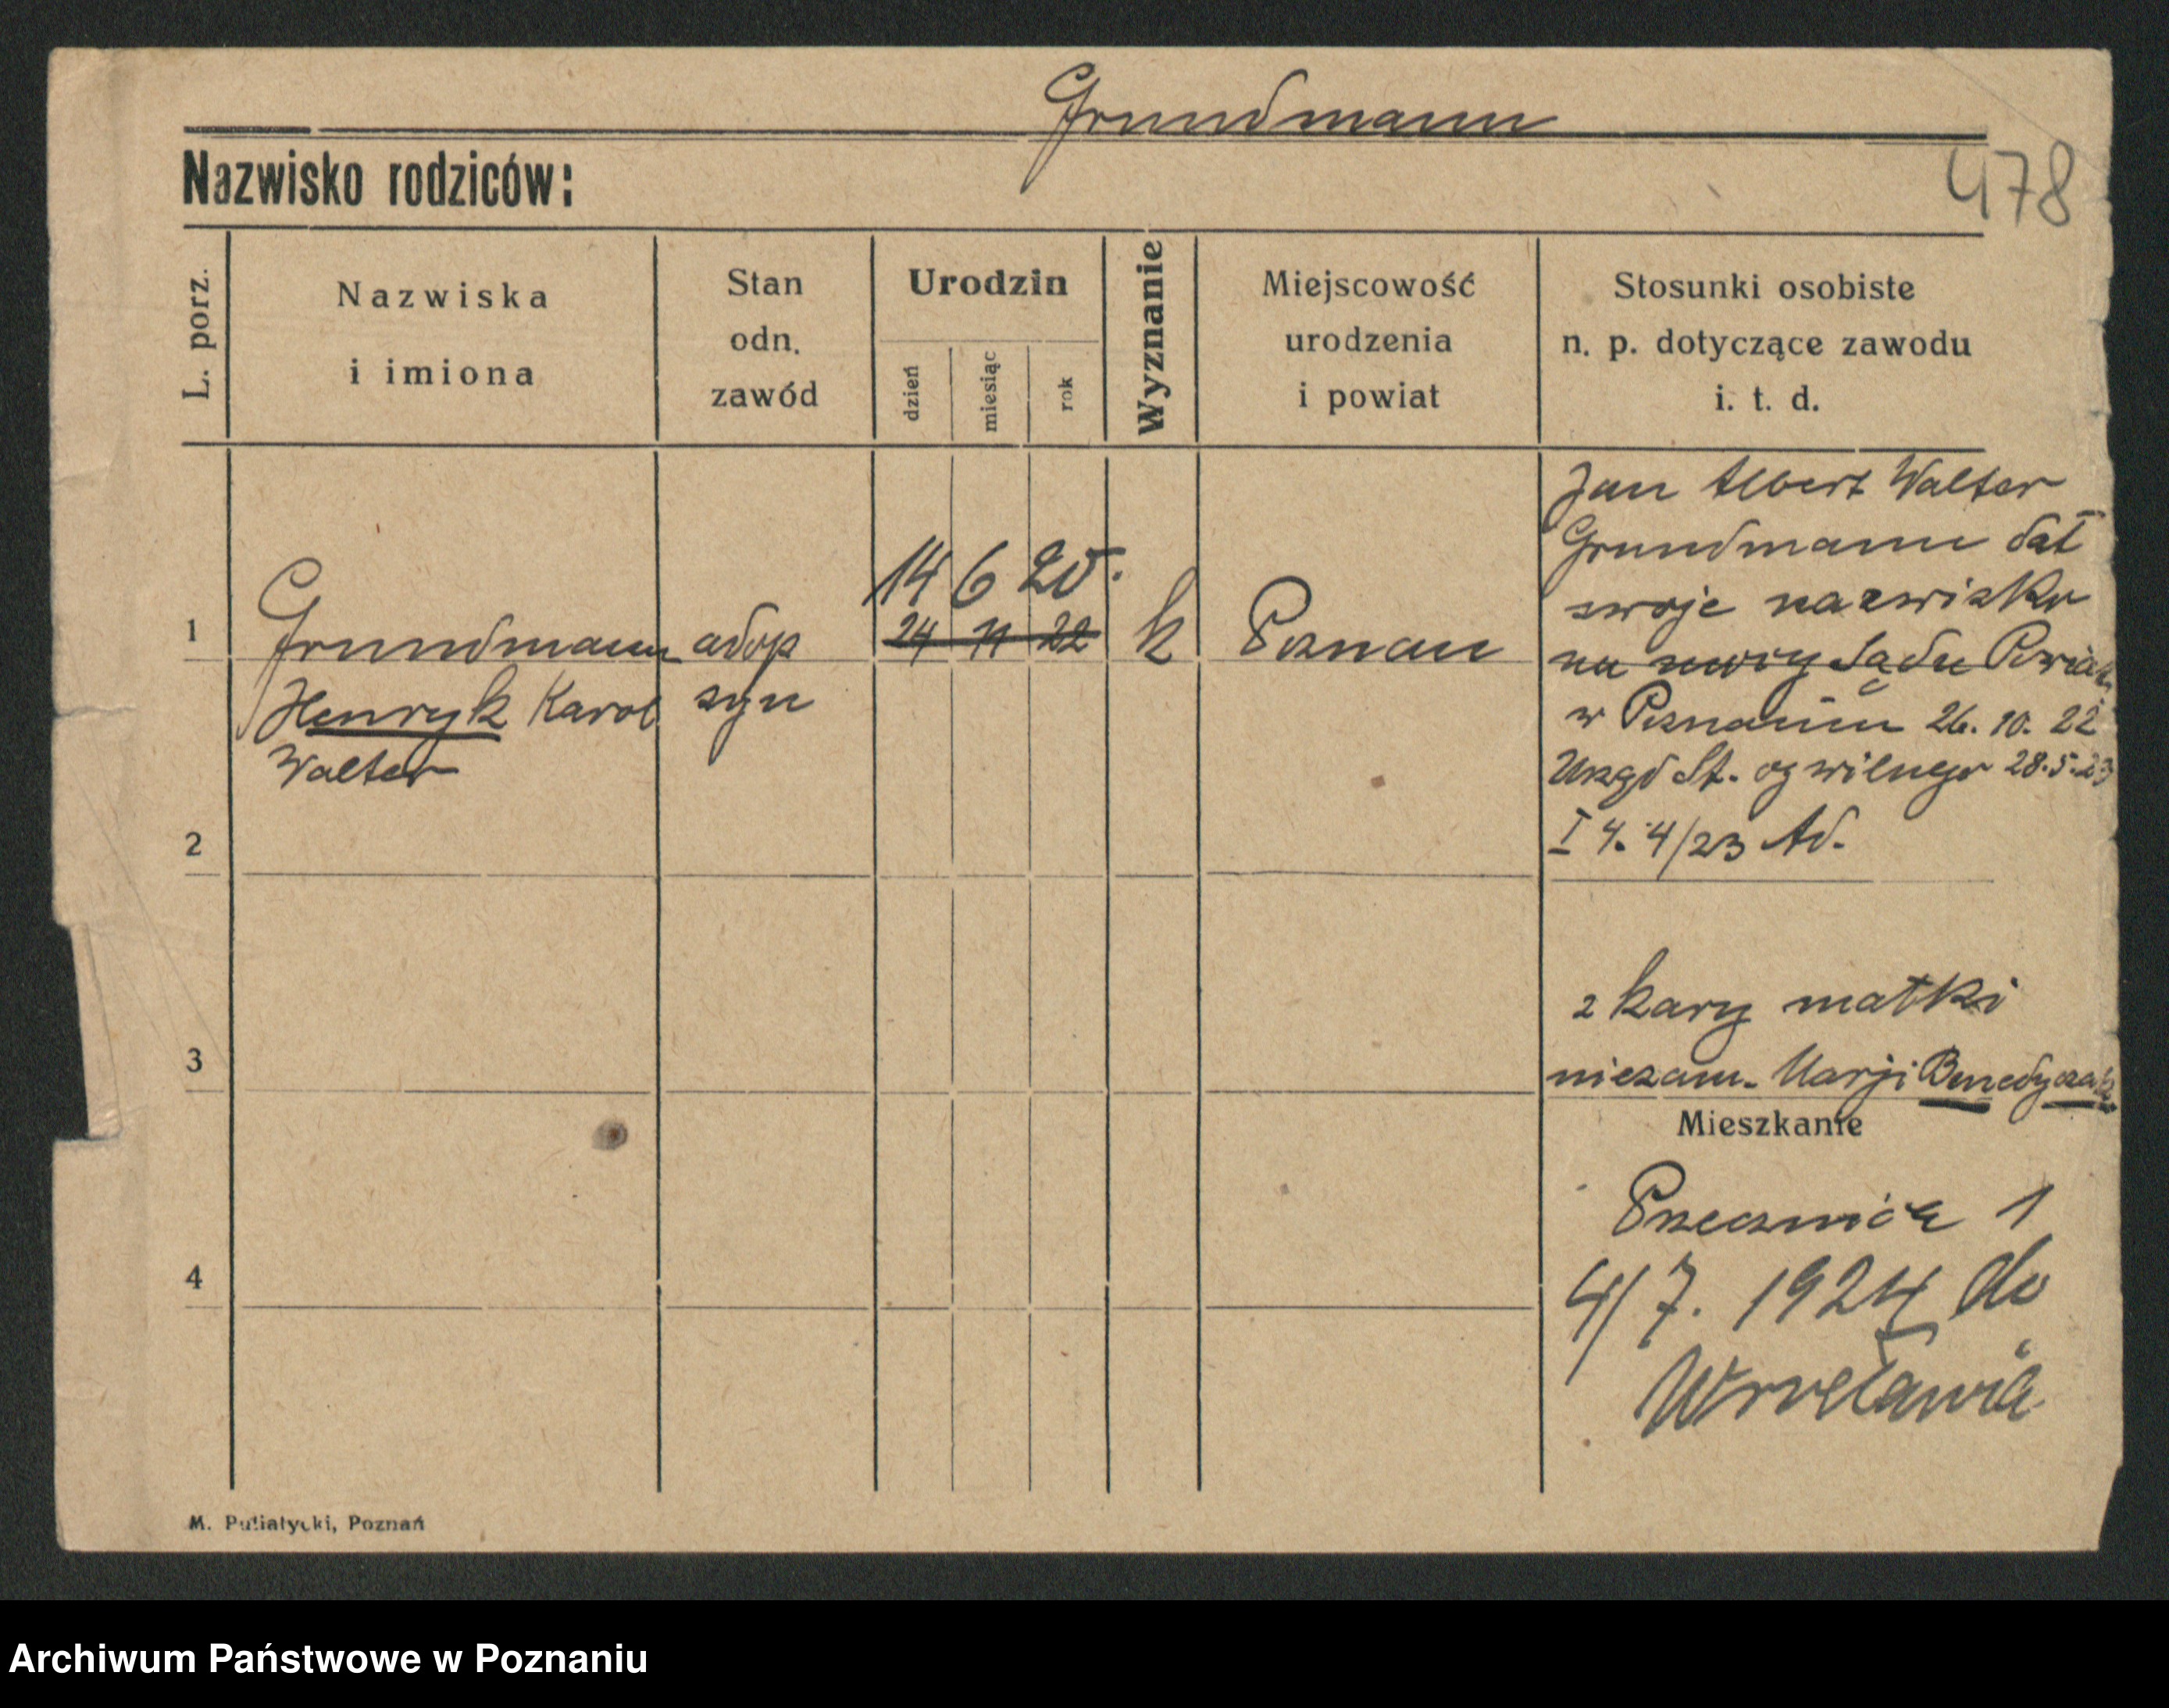 Grundmann
Nazwisko rodziców:
478
L. porz.
Nazwiska
i imiona
Stan
odn.
zawód
Urodzin
dzień
miesiąc
rok
Wyznanie
Miejscowość
urodzenia
i powiat
Stosunki osobiste
n. p. dotyczące zawodu
i. t. d.
1
Grundmann
Henryk Karol
Walter
adop
syn
14 6 20.
24 11 22
k
Poznań
Jan Albert Walter
Grundmann dał
swoje nazwisko
na mocy Sądu Powiat
w Poznaniu 26. 10. 22
Urząd St. cywilnego 28.5.23
I 4. 4/23 Ad.
2
z kary matki
niezam. Marji Benedyczak
3
Mieszkanie
1
4/7. 1924 do
Wrocławia
4
M. Putiatycki, Poznań
Archiwum Państwowe w Poznaniu